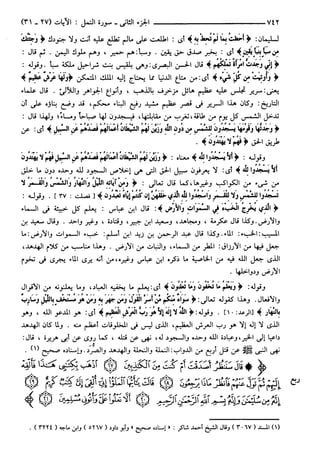 ٧٤٢ ــــــــــــ الجزء الثانى ــ سورة النمل : الآيات (٢٧ - ٣١)
لسليمان: ﴿ أَحَطتُ بِمَا لَمْ تُحِطْ بِهِ ﴾ أى : اطلعت على مالم تطلع عليه أنت ولا جنودك ﴿ وَجِئْتُكَ
مِن سَبَإٍ بِنَبَإٍ يَقِينٍ ﴾ أى : بخبر صدق حق يقين . وسبأ: هم حمير ، وهم ملوك اليمن . ثم قال :
﴿ إِنِّي وَجَدتُّ امْرَأَةً تَمْلِكُهُمْ ﴾ قال الحسن البصرى: وهى بلقيس بنت شراحيل ملكة سبأ . وقوله :
﴿ وَأُوتِيَتْ مِن كُلِّ شَيْءٍ ﴾ أى: من متاع الدنيا مما يحتاج إليه الملك المتمكن ﴿ وَلَهَا عَرْشٌ عَظِيمٌ ﴾
يعنى: سرير تجلس عليه عظيم هائل مزخرف بالذهب ، وأنواع الجواهر واللآلئ . قال علماء
التاريخ: وكان هذا السرير فى قصر عظيم مشيد رفيع البناء محكم، قد وضع بناؤه على أن
تدخل الشمس كل يوم من طاقة، وتغرب من مقابلتها، فيسجدون لها صباحاً ومساءً، ولهذا قال :
﴿ وَجَدتُّهَا وَقَوْمَهَا يَسْجُدُونَ لِلشَّمْسِ مِن دُونِ اللَّهِ وَزَيَّنَ لَهُمُ الشَّيْطَانُ أَعْمَالَهُمْ فَصَدَّهُمْ عَنِ السَّبِيلِ ﴾ أى: عن
طريق الحق ﴿ فَهُمْ لا يَهْتَدُونَ ﴾ .
وقوله : ﴿ أَلاَّ يَسْجُدُوا لِلَّهِ ﴾ معناه : ﴿ وَزَيَّنَ لَهُمُ الشَّيْطَانُ أَعْمَالَهُمْ فَصَدَّهُمْ عَنِ السَّبِيلِ فَهُمْ لا يَهْتَدُونَ
أَلاَّ يَسْجُدُوا لِلَّهِ ﴾ أى: لا يعرفون سبيل الحق التى هى إخلاص السجود لله وحده دون ما خلق
من شىء من الكواكب وغيرها، كما قال تعالى : ﴿ وَمِنْ آيَاتِهِ اللَّيْلُ وَالنَّهَارُ وَالشَّمْسُ وَالْقَمَرُ لا
تَسْجُدُوا لِلشَّمْسِ وَلا لِلْقَمَرِ وَاسْجُدُوا لِلَّهِ الَّذِي خَلَقَهُنَّ إِن كُنتُمْ إِيَّاهُ تَعْبُدُونَ ﴾ [ فصلت : ٣٧ ] . وقوله :
﴿ الَّذِي يُخْرِجُ الْخَبْءَ فِي السَّمَوَاتِ وَالأَرْضِ ﴾ : قال ابن عباس : يعلم كل خبيئة فى السماء
والأرض. وكذا قال عكرمة ، ومجاهد، وسعيد ابن جبير، وقتادة ، وغير واحد . وقال سعيد بن
المسيب: الخبء: الماء. وكذا قال عبد الرحمن بن زيد ابن أسلم: خبء السموات والأرض: ما
جعل فيها من الأرزاق: المطر من السماء، والنبات من الأرض . وهذا مناسب من كلام الهدهد،
الذى جعل الله فيه من الخاصية ما ذكره ابن عباس وغيره، من أنه يرى الماء يجرى فى تخوم
الأرض ودواخلها .
وقوله: ﴿ وَيَعْلَمُ مَا تُخْفُونَ وَمَا تُعْلِنُونَ ﴾ أى: يعلم ما يخفيه العباد، وما يعلنونه من الأقوال
والأفعال. وهذا كقوله تعالى: ﴿ سَوَاءٌ مِّنكُم مَّنْ أَسَرَّ الْقَوْلَ وَمَن جَهَرَ بِهِ وَمَنْ هُوَ مُسْتَخْفٍ بِاللَّيْلِ وَسَارِبٌ
بِالنَّهَارِ ﴾ [الرعد: ١٠] . وقوله: ﴿ اللَّهُ لا إِلَهَ إِلاَّ هُوَ رَبُّ الْعَرْشِ الْعَظِيمِ ﴾ أى: هو المدعو الله ، وهو
الذى لا إله إلا هو رب العرش العظيم، الذى ليس فى المخلوقات أعظم منه . ولما كان الهدهد
داعيا إلى الخير، وعبادة الله وحده والسجود له، نهى عن قتله ، كما روى عن أبى هريرة ، قال:
نهى النبى ﷺ عن قتل أربع من الدواب: النملة والنحلة والهدهد والصُّرَد. وإسناده صحيح (١) .
﴿ قَالَ سَنَنظُرُ أَصَدَقْتَ أَمْ كُنتَ مِنَ الْكَاذِبِينَ ۝ اذْهَب بِّكِتَابِي هَذَا فَأَلْقِهْ
إِلَيْهِمْ ثُمَّ تَوَلَّ عَنْهُمْ فَانظُرْ مَاذَا يَرْجِعُونَ ۝ قَالَتْ يَا أَيُّهَا الْمَلَأُ إِنِّي أُلْقِيَ إِلَيَّ كِتَابٌ كَرِيمٌ
۝ إِنَّهُ مِن سُلَيْمَانَ وَإِنَّهُ بِسْمِ اللَّهِ الرَّحْمَنِ الرَّحِيمِ ۝ أَلَّا تَعْلُوا عَلَيَّ وَأْتُونِي مُسْلِمِينَ ۝ ﴾
(١) المسند (٣٠٦٧) وقال الشيخ أحمد شاكر : « إسناده صحيح » وأبو داود (٥٢٦٧) وابن ماجه (٣٢٢٤) .